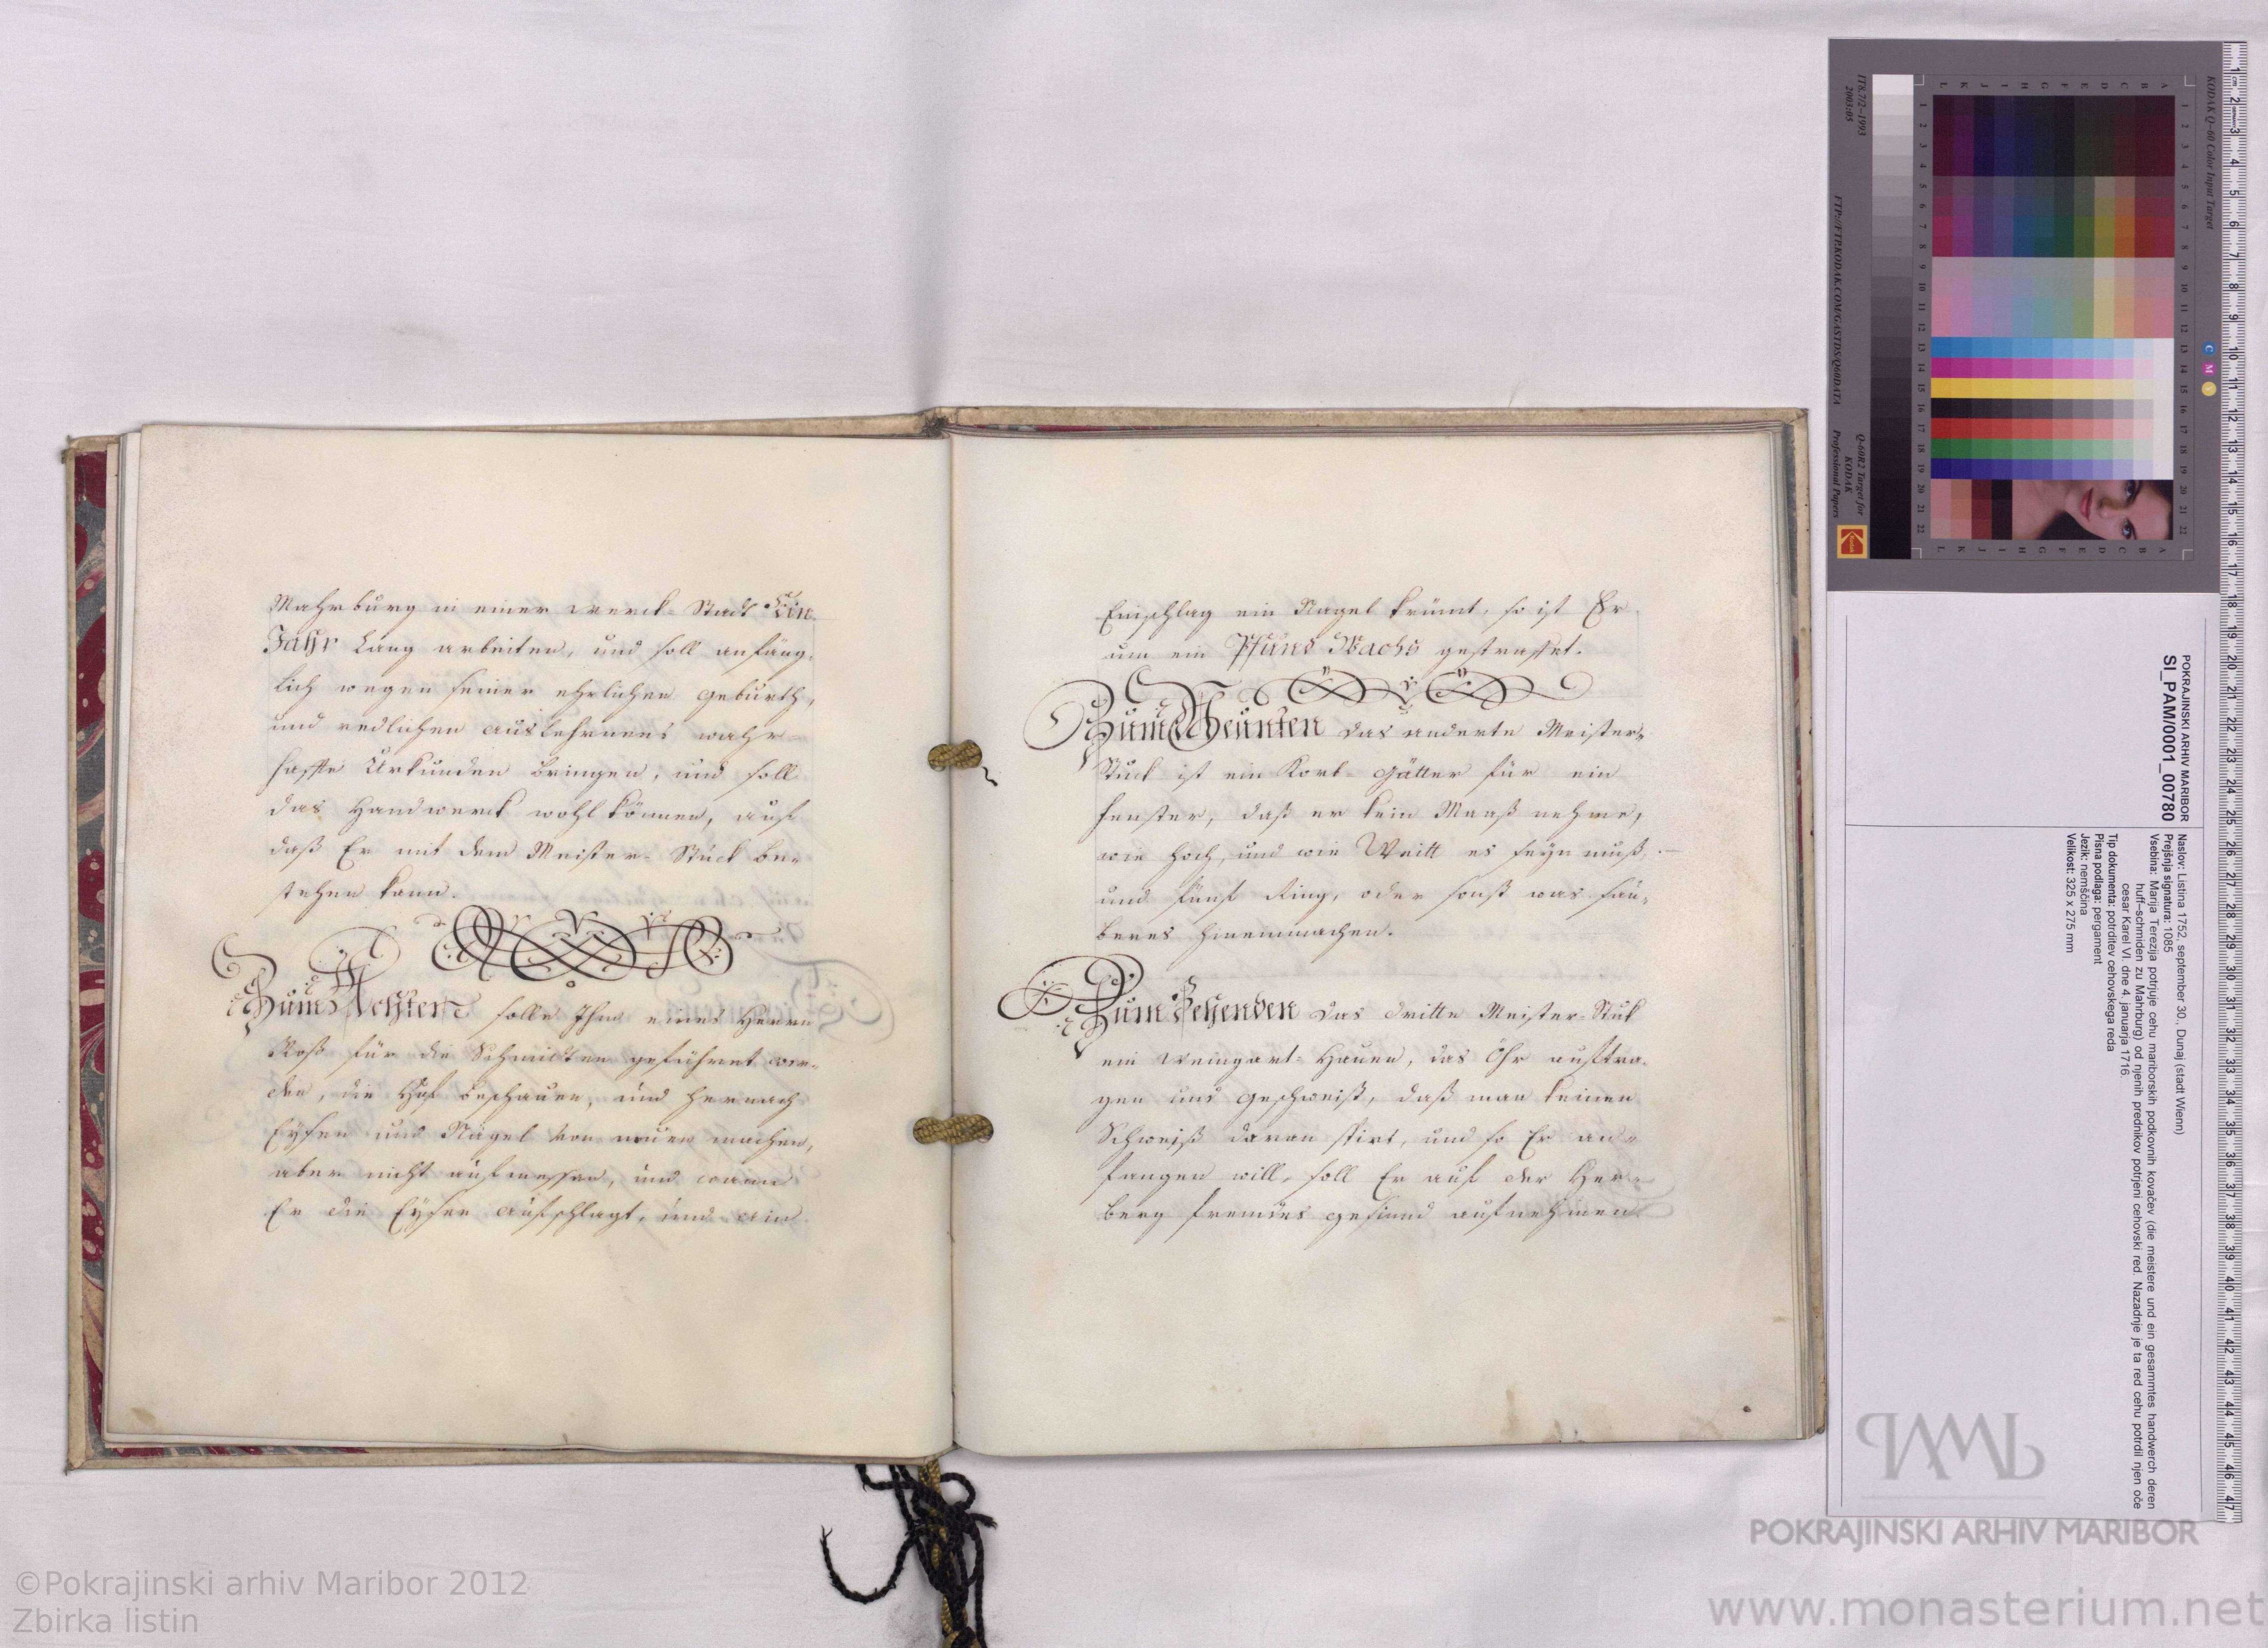 Mahrburg in einer werck-Stadt Ein
Jahr lang arbeiten, und soll anfäng-
lich wegen seiner ehrlichen geburth,
und redlichen auslehrnens wahr-
haffte Urkunden bringen, und soll
das Handwerck wohl können, auf
daß Er mit dem Meister-Stuck be-
stehen kann.
Zum Achten solle Ihm eines Herrn
Roß für die Schmidten geführet wer-
den, die Huf beschauen, und hernach
Eysen und Nägel von neuen machen,
aber nicht aufmessen, und wann
Er die Eysen aufschlagt, und am
Einschlag ein Nagel krümt, so ist Er
um ein Pfund Wachs gestraffet.
Zum Neunten das anderte Meister-
Stuck ist ein Korb-gätter für ein
fenster, daß er kein Maaß nehme,
wie hoch, und wie Weitt es seyn muß,
und fünf Ring, oder sonst was sau-
beres hineinmachen.
Zum Zehenden das dritte Meister-Stuk
ein Weingart-Hauen, das Öhr auftra-
gen und geschweist, daß man keinen
Schweiß daran spirt, und so Er an-
fangen will, soll Er auf der Her-
berg fremdes gesind aufnehmen
KODAK Q-60 Color Input Target
IT8.7/2-1993
2003:05
FTP://FTP.KODAK.COM/GASTDS/Q60DATA
Q-60R2 Target for
KODAK
Professional Papers
POKRAJINSKI ARHIV MARIBOR
SI_PAM/0001_00780
Naslov: Listina 1752, september 30., Dunaj (stadt Wienn)
Prejšnja signatura: 1085
Vsebina: Marija Terezija potrjuje cehu mariborskih podkovnih kovačev (die meistere und ein gesammtes handwerch deren
huff-schmiden zu Mahrburg) od njenih prednikov potrjeni cehovski red. Nazadnje je ta red cehu potrdil njen oče
cesar Karel VI. dne 4. januarja 1716.
Tip dokumenta: potrditev cehovskega reda
Pisna podlaga: pergament
Jezik: nemščina
Velikost: 325 x 275 mm
PAM
POKRAJINSKI ARHIV MARIBOR
©Pokrajinski arhiv Maribor 2012
Zbirka listin
www.monasterium.net